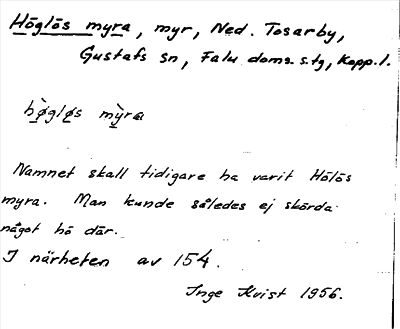 Höglös myra, myr, Ned. Tosarby,
Gustafs sn, Falu doms.stg, Kopp.l.
hø̀gløs mỳra
Namnet skall tidigare ha varit Hölös
myra. Man kunde således ej skörda
något hö där.
I närheten av 154.
Inge Kvist 1956.